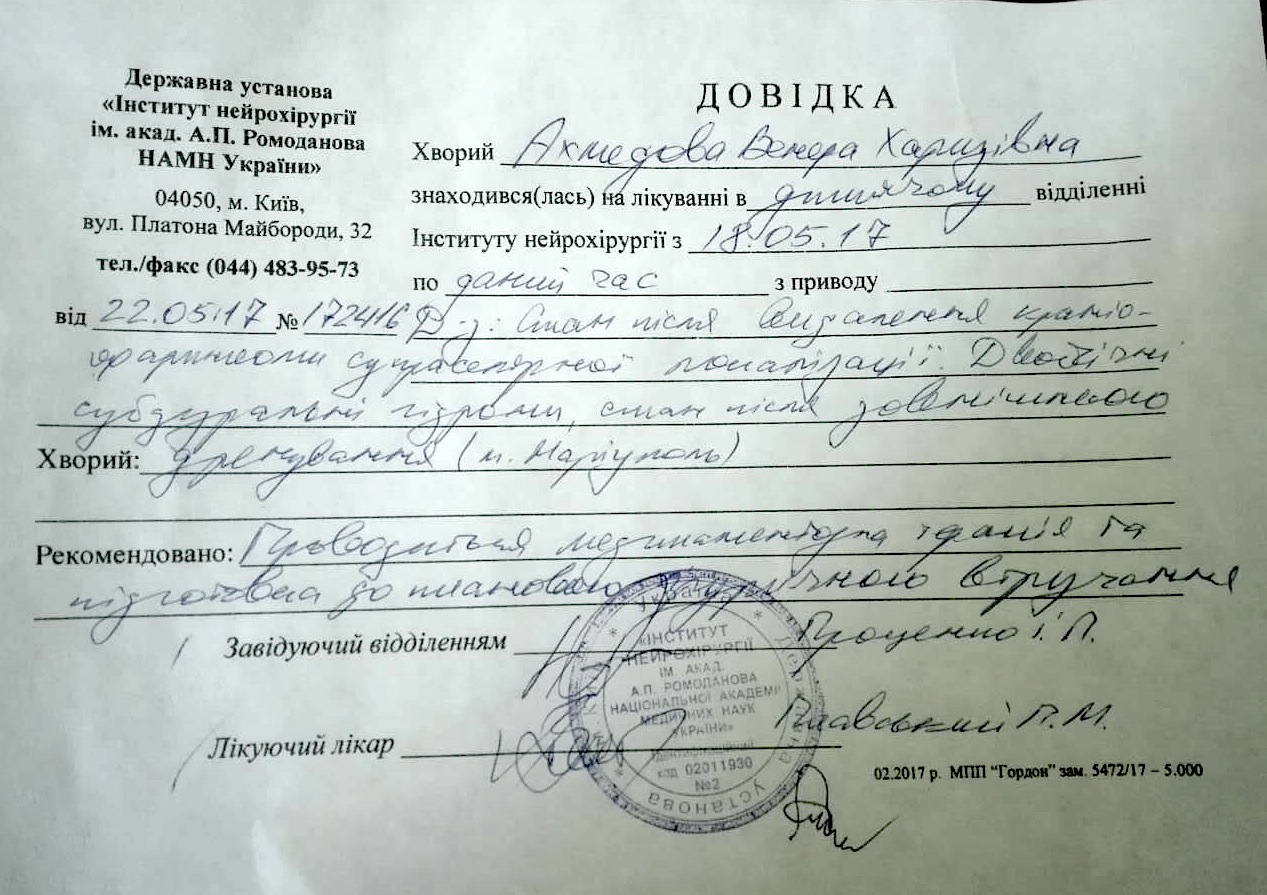 Державна установа
«Інститут нейрохірургії
ім. акад. А.П. Ромоданова
НАМН України»
04050, м. Київ,
вул. Платона Майбороди, 32
тел./факс (044) 483-95-73
від 22.05.17 № 172416
ДОВІДКА
Хворий Ахмедова Венера Харизівна
знаходився(лась) на лікуванні в дитячому відділенні
Інституту нейрохірургії з 18.05.17
по даний час з приводу
Д-з: Стан після видалення краніо-
фарингеоми супраселярної локалізації. Двобічні
субдуральні гідроми, стан після зовнішнього
Хворий: дренування (м. Маріуполь)
Рекомендовано: Проводиться медикаментозна терапія та
підготовка до планового хірургічного втручання
Завідуючий відділенням Проценко І.П.
Лікуючий лікар Плавський П.М.
Україна * Державна установа *
«ІНСТИТУТ
НЕЙРОХІРУРГІЇ
ІМ. АКАД.
А.П. РОМОДАНОВА
НАЦІОНАЛЬНОЇ АКАДЕМІЇ
МЕДИЧНИХ НАУК
УКРАЇНИ»
Ідентифікаційний
код 02011930
№2
02.2017 р. МПП “Гордон” зам. 5472/17 – 5.000